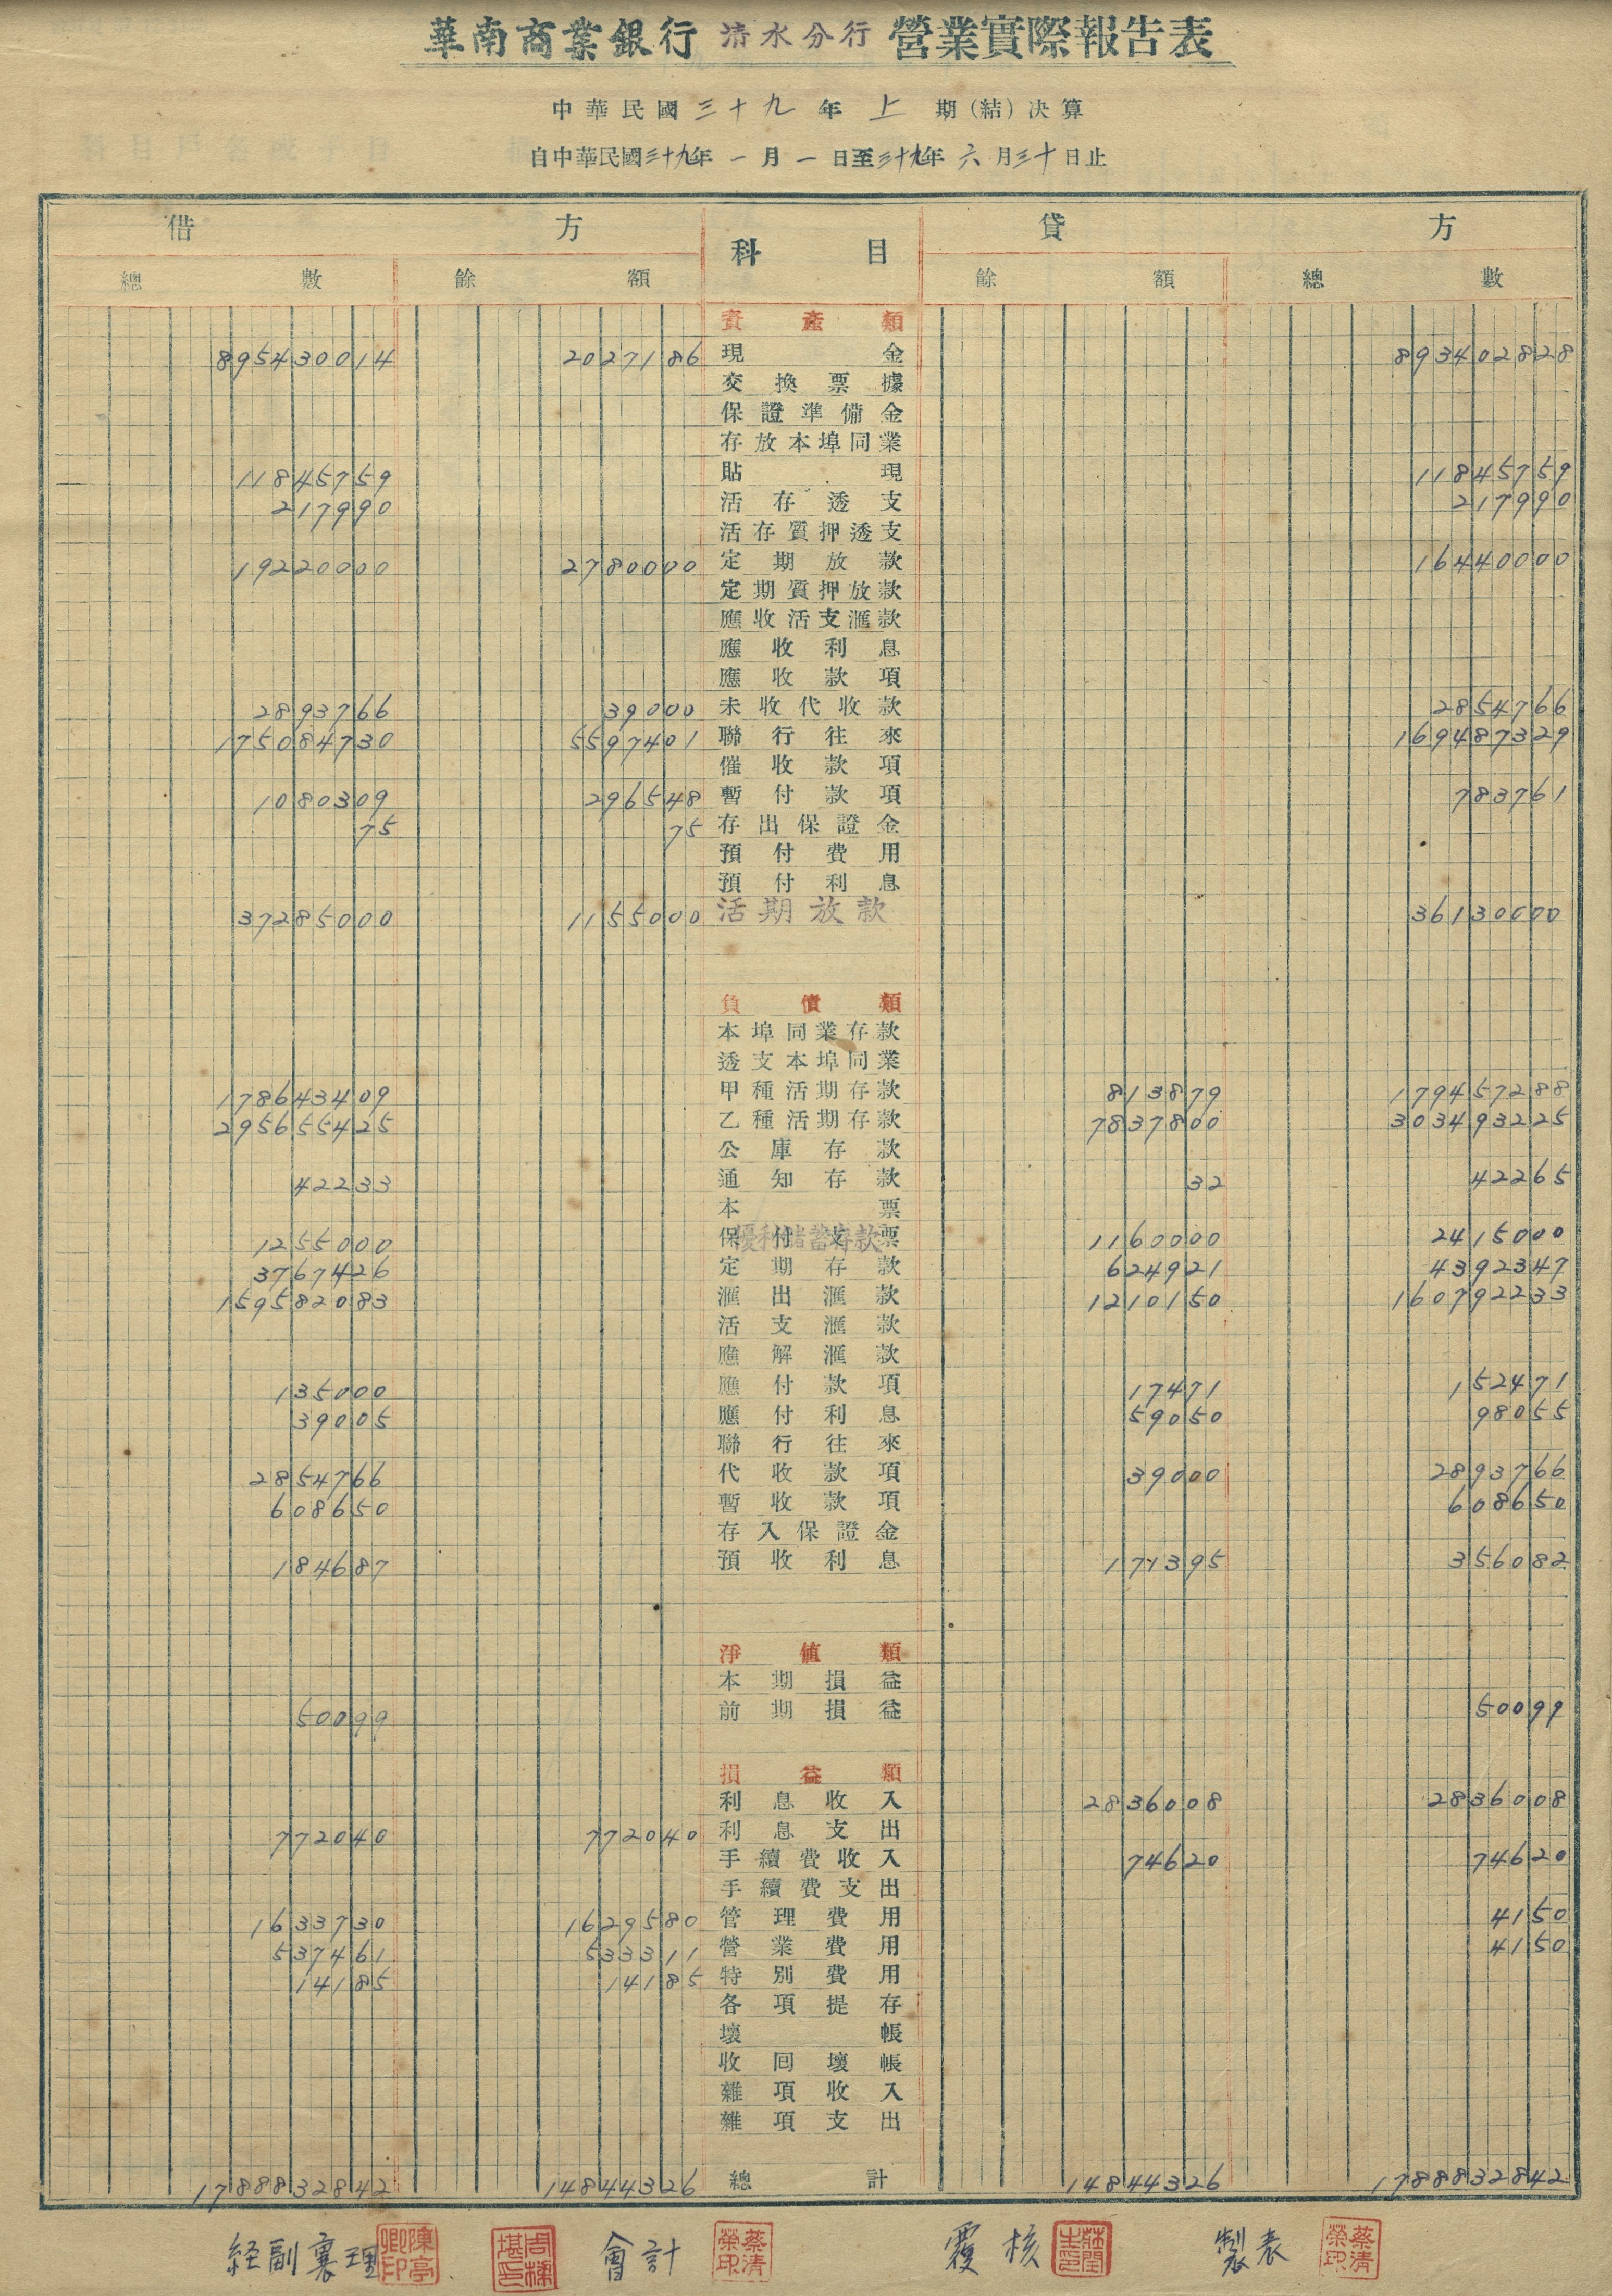 華南商業銀行 清水分行 營業實際報告表
中華民國三十九年上期(結)決算
自中華民國三十九年一月一日至三十九年六月三十日止
借方 科目 貸方
總數 餘額 餘額 總數
資產類
895430014 2027186 現金 893402828
交換票據
保證準備金
存放本埠同業
11845759 貼現 11845759
217990 活存透支 217990
活存質押透支
19220000 2780000 定期放款 16440000
定期質押放款
應收活支滙款
應收利息
應收款項
2893766 39000 未收代收款 2854766
175084730 5597401 聯行往來 169487329
催收款項
1080309 296548 暫付款項 783761
75 75 存出保證金
預付費用
預付利息
37285000 1155000 活期放款 36130000
負債類
本埠同業存款
透支本埠同業
178643409 甲種活期存款 813879 179457288
295655425 乙種活期存款 7837800 303493225
公庫存款
42233 通知存款 32 42265
本票
1255000 保付支票 優利儲蓄存款 1160000 2415000
3767426 定期存款 624921 4392347
159582083 滙出滙款 1210150 160792233
活支滙款
應解滙款
135000 應付款項 17471 152471
39005 應付利息 59050 98055
聯行往來
2854766 代收款項 39000 2893766
608650 暫收款項 608650
存入保證金
184687 預收利息 171395 356082
淨值類
本期損益
50099 前期損益 50099
損益類
利息收入 2836008 2836008
772040 772040 利息支出
手續費收入 74620 74620
手續費支出
1633730 1629580 管理費用 4150
537461 533311 營業費用 4150
14185 14185 特別費用
各項提存
壞帳
收回壞帳
雜項收入
雜項支出
1788832842 14844326 總計 14844326 1788832842
経副襄理 陳亭卿印 會計 蔡清榮印 覆核 製表 蔡清榮印